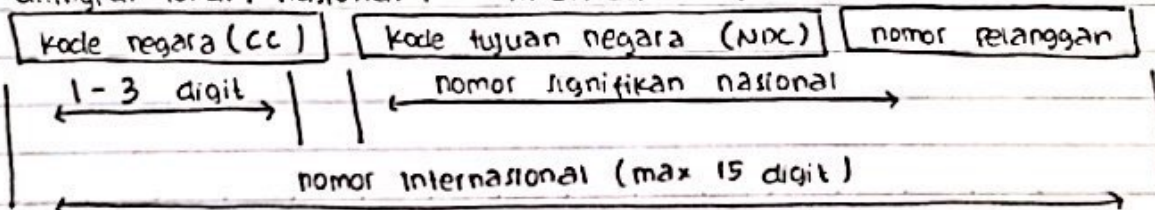 kode negara (CC) kode tujuan negara (NDC) nomor pelanggan
1 - 3 digit nomor signifikan nasional
nomor internasional (max 15 digit)